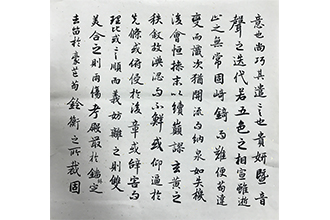 意也尚巧其遣言也貴妍暨音
聲之迭代若五色之相宣雖逝
止之無常固崎錡而難便苟達
變而識次猶開流以納泉如失機
後會恒操末以續巔謬玄黃之
秩敘故淟涊而不鮮或仰逼於
先條或俯侵於後章或辭害而
理比或言順而義妨離之則雙
美合之則兩傷考殿最於錙銖定
去留於毫芒苟銓衡之所裁固